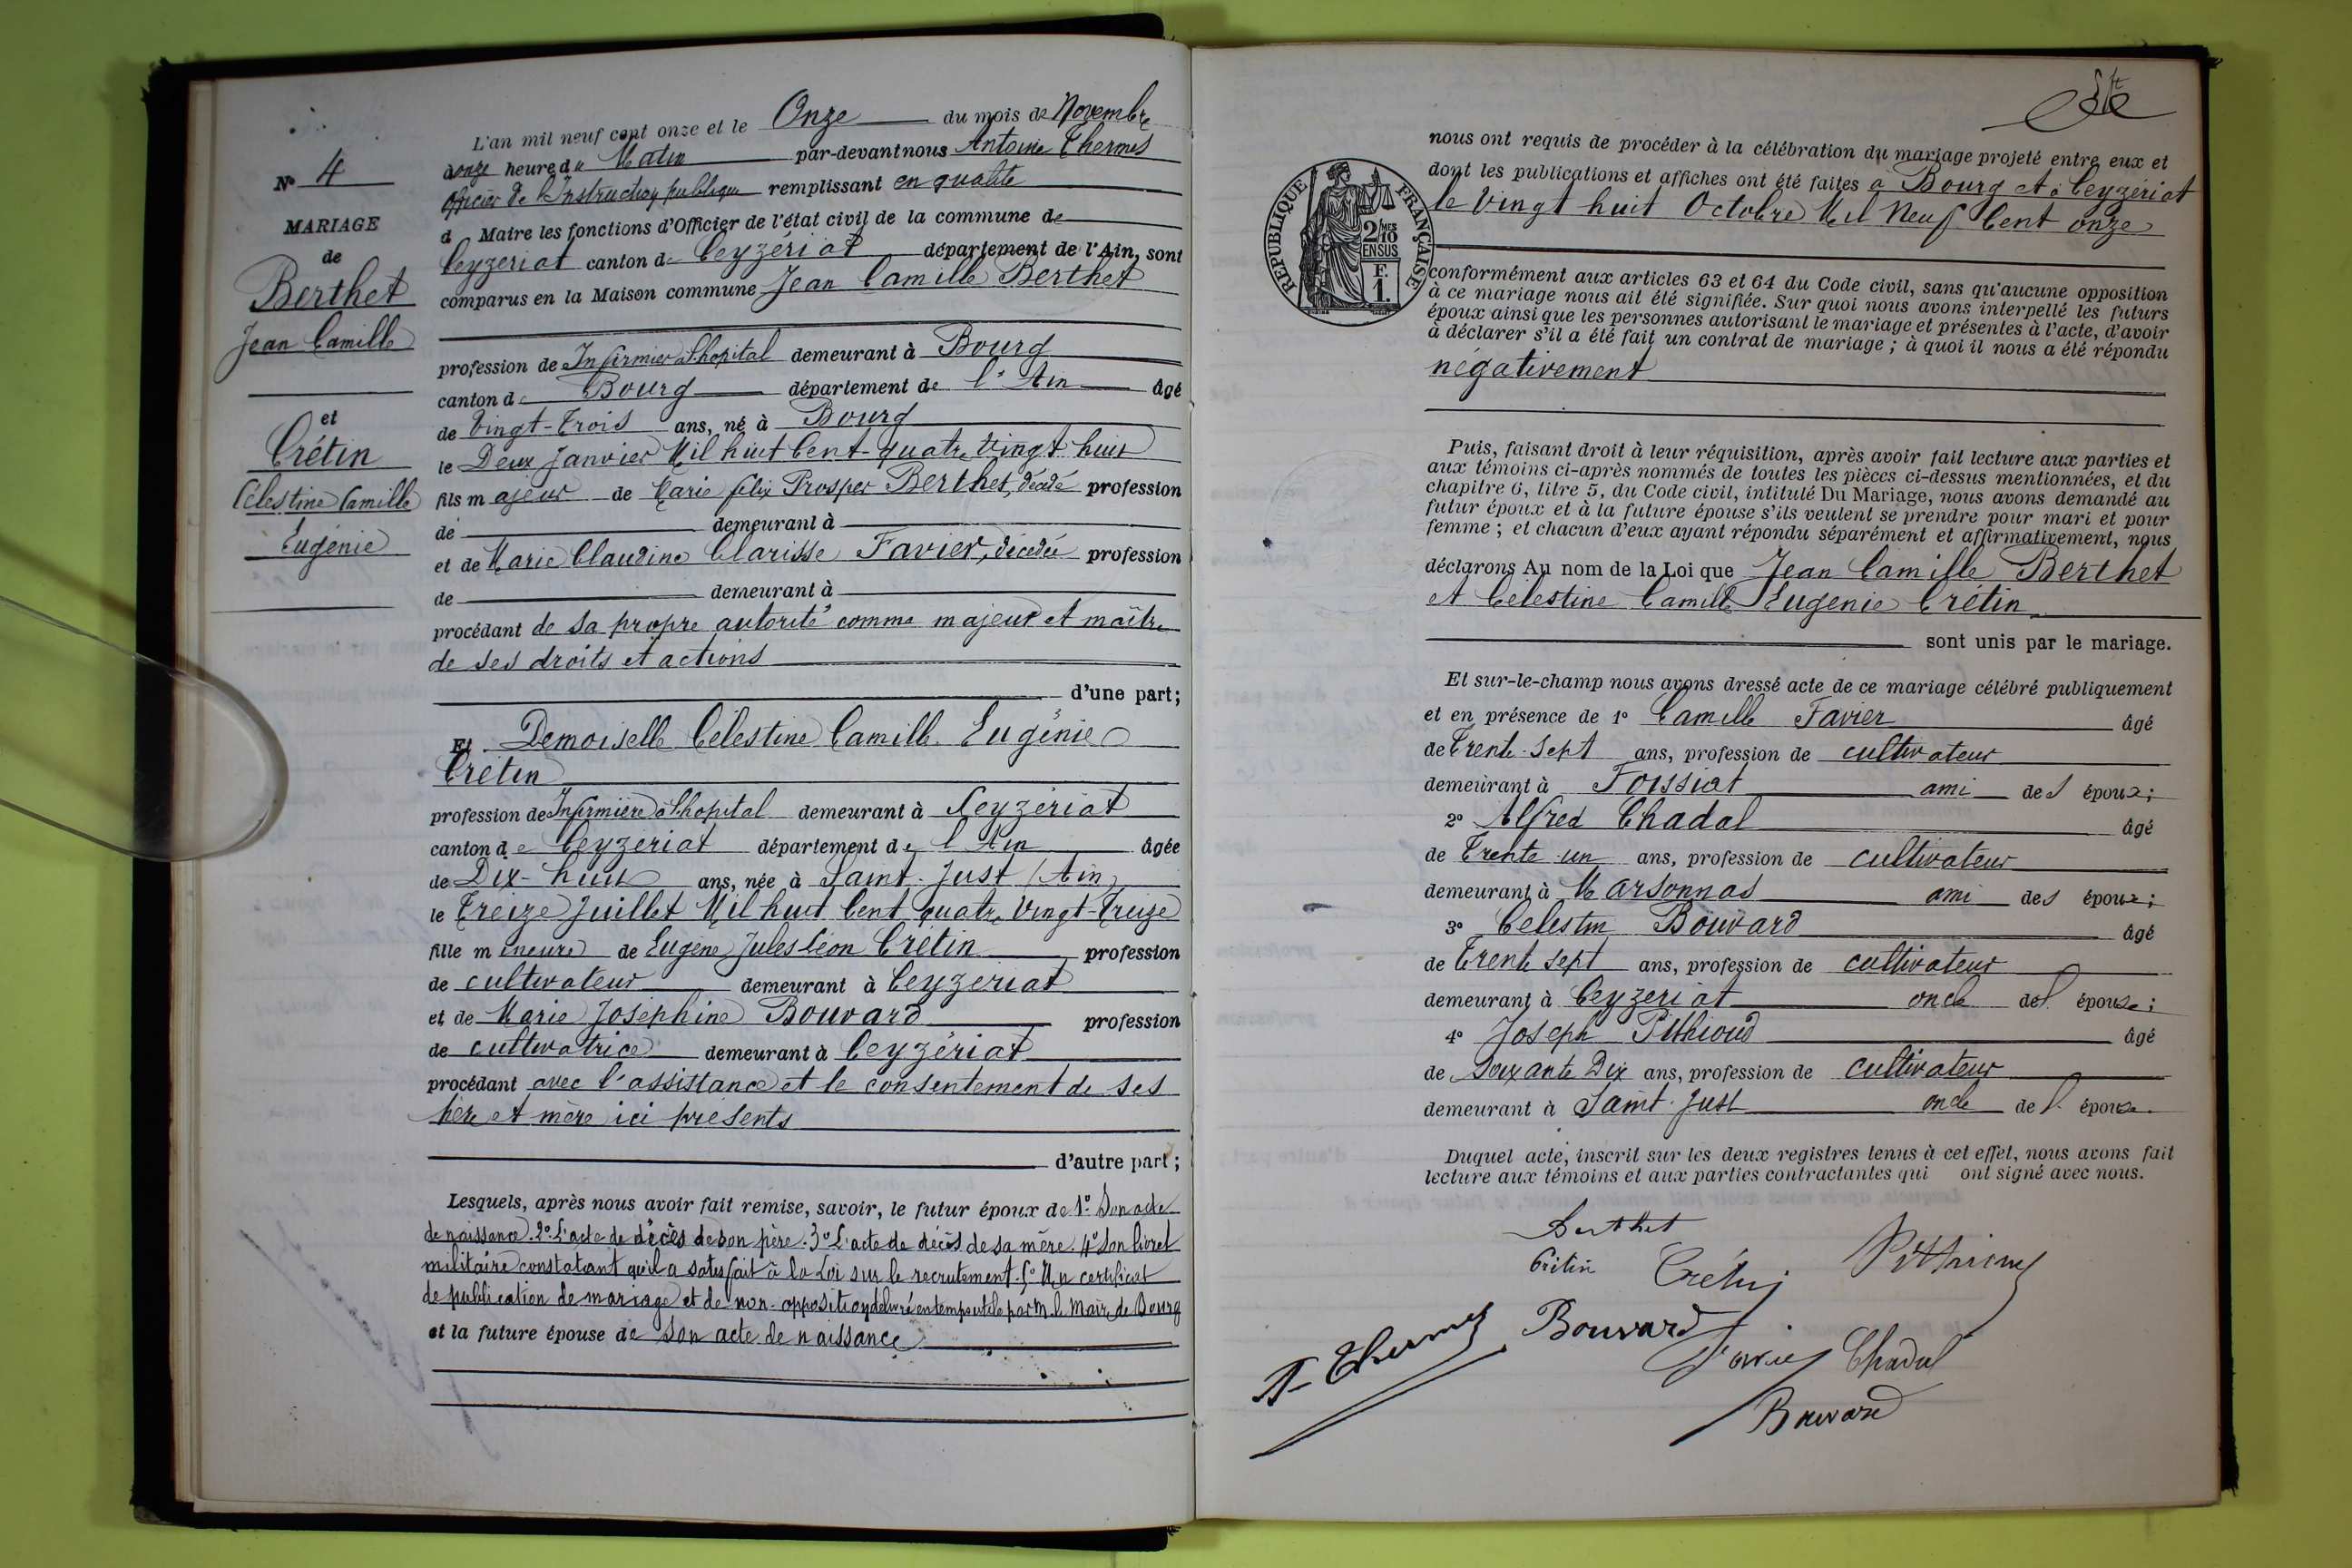 N° 4
MARIAGE
de
Berthet
Jean Camille
et
Crétin
Célestine Camille
Eugénie
L'an mil neuf cent onze et le Onze du mois de Novembre
à onze heure du Matin par-devant nous Antoine Thermes
officier de l'Instruction publique remplissant en qualité
d Maire les fonctions d'Officier de l'état civil de la commune de
Ceyzériat canton de Ceyzériat département de l'Ain, sont
comparus en la Maison commune Jean Camille Berthet
profession de Infirmier à l'hopital demeurant à Bourg
canton de Bourg département de l'Ain âgé
de Vingt-Trois ans, né à Bourg
le Deux Janvier Mil huit Cent quatre Vingt huit
fils majeur de Marie félix Prosper Berthet, décédé profession
de demeurant à
et de Marie Claudine Clarisse Favier, décédée profession
de demeurant à
procédant de sa propre autorité comme majeur et maître
de ses droits et actions
d'une part;
Et Demoiselle Célestine Camille Eugénie
Crétin
profession de Infirmière à l'hopital demeurant à Ceyzériat
canton de Ceyzériat département de l'Ain âgée
de Dix-huit ans, née à Saint-Just (Ain)
le Treize Juillet Mil huit Cent quatre Vingt-Treize
fille mineure de Eugène Jules Léon Crétin profession
de cultivateur demeurant à Ceyzériat
et de Marie Joséphine Bouvard profession
de cultivatrice demeurant à Ceyzériat
procédant avec l'assistance et le consentement de ses
père et mère ici présents
d'autre part;
Lesquels, après nous avoir fait remise, savoir, le futur époux de 1° Son acte
de naissance. 2° L'acte de décès de son père. 3° L'acte de décès de sa mère. 4° Son livret
militaire constatant qu'il a satisfait à la Loi sur le recrutement. 5° Un certificat
de publication de mariage et de non-opposition délivré en temps utile par M. le Maire de Bourg
et la future épouse de Son acte de naissance
nous ont requis de procéder à la célébration du mariage projeté entre eux et
dont les publications et affiches ont été faites à Bourg et à Ceyzériat
le Vingt huit Octobre Mil Neuf Cent onze
RÉPUBLIQUE FRANÇAISE
2/10 MES
EN SUS
F.
1.
conformément aux articles 63 et 64 du Code civil, sans qu'aucune opposition
à ce mariage nous ait été signifiée. Sur quoi nous avons interpellé les futurs
époux ainsi que les personnes autorisant le mariage et présentes à l'acte, d'avoir
à déclarer s'il a été fait un contrat de mariage; à quoi il nous a été répondu
négativement
Puis, faisant droit à leur réquisition, après avoir fait lecture aux parties et
aux témoins ci-après nommés de toutes les pièces ci-dessus mentionnées, et du
chapitre 6, titre 5, du Code civil, intitulé Du Mariage, nous avons demandé au
futur époux et à la future épouse s'ils veulent se prendre pour mari et pour
femme; et chacun d'eux ayant répondu séparément et affirmativement, nous
déclarons Au nom de la Loi que Jean Camille Berthet
et Célestine Camille Eugénie Crétin
sont unis par le mariage.
Et sur-le-champ nous avons dressé acte de ce mariage célébré publiquement
et en présence de 1° Camille Favier âgé
de Trente-Sept ans, profession de cultivateur
demeurant à Foissiat ami des époux;
2° Alfred Chadal âgé
de Trente un ans, profession de cultivateur
demeurant à Marsonnas ami des époux;
3° Célestin Bouvard âgé
de Trente sept ans, profession de cultivateur
demeurant à Ceyzériat oncle de l' épouse;
4° Joseph Pithioud âgé
de Soixante Dix ans, profession de cultivateur
demeurant à Saint-Just oncle de l' épouse.
Duquel acte, inscrit sur les deux registres tenus à cet effet, nous avons fait
lecture aux témoins et aux parties contractantes qui ont signé avec nous.
Berthet
Crétin Crétin Pithioud
A. Thermes Bouvard
Favier Chadal
Bouvard